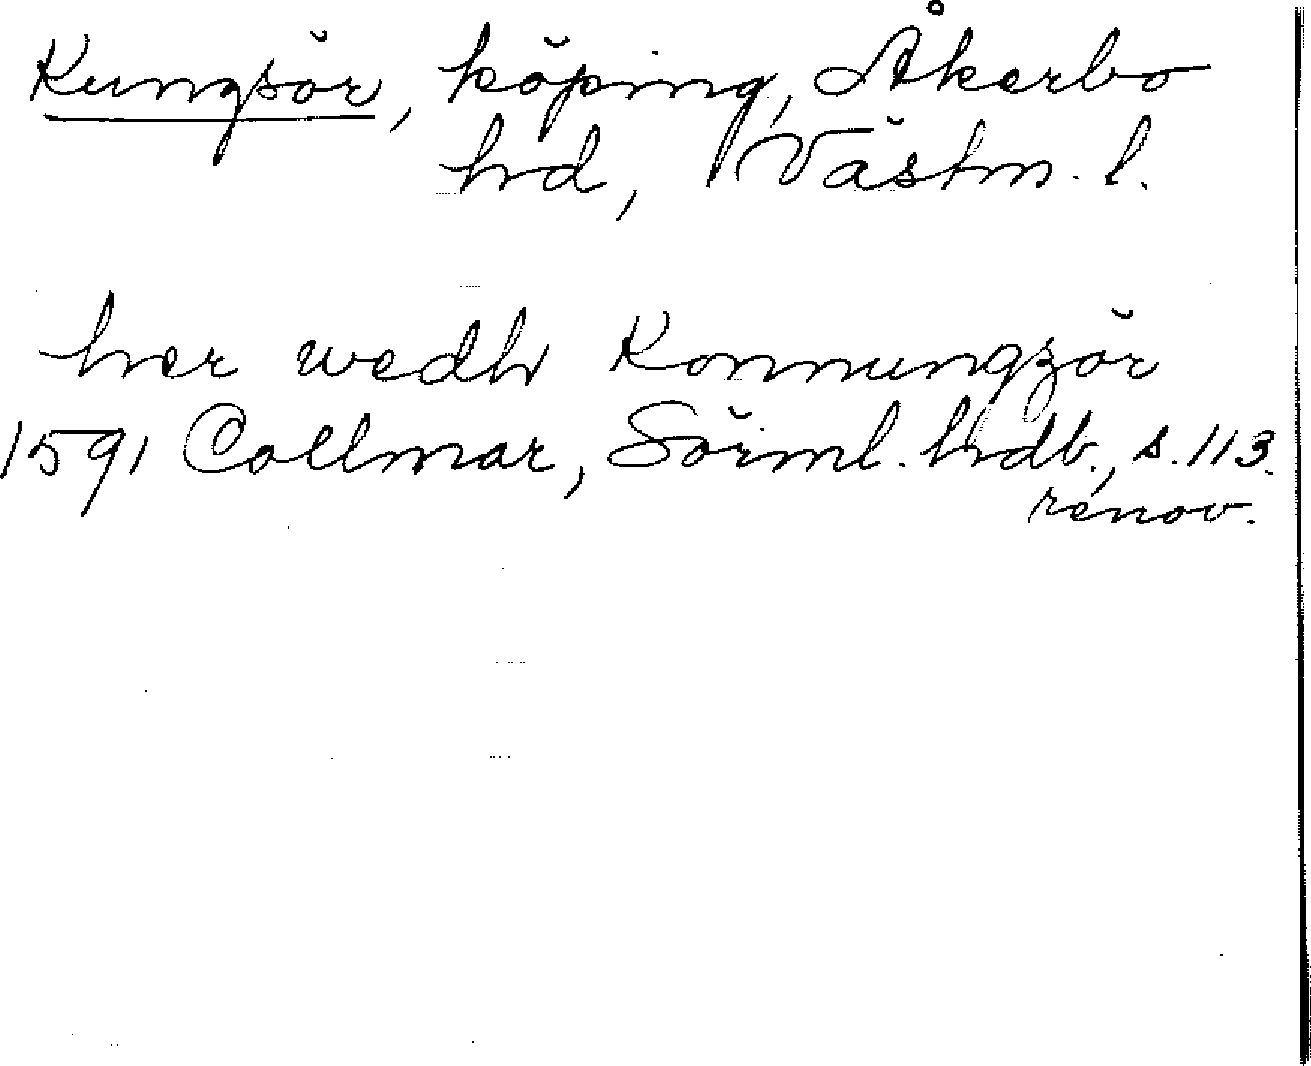 Kungsör, köping, Åkerbo
hd, Västm. l.
her wedh Konnungzör
1591 Collmar, Sörml. hdb., s. 113.
renov.